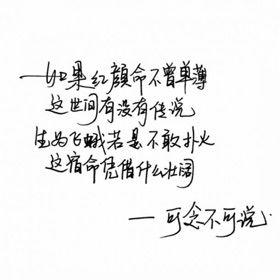 —如果红颜命不曾单薄
这世间有没有传说
生为飞蛾若是不敢扑火
这宿命凭借什么壮阔
—可念不可说